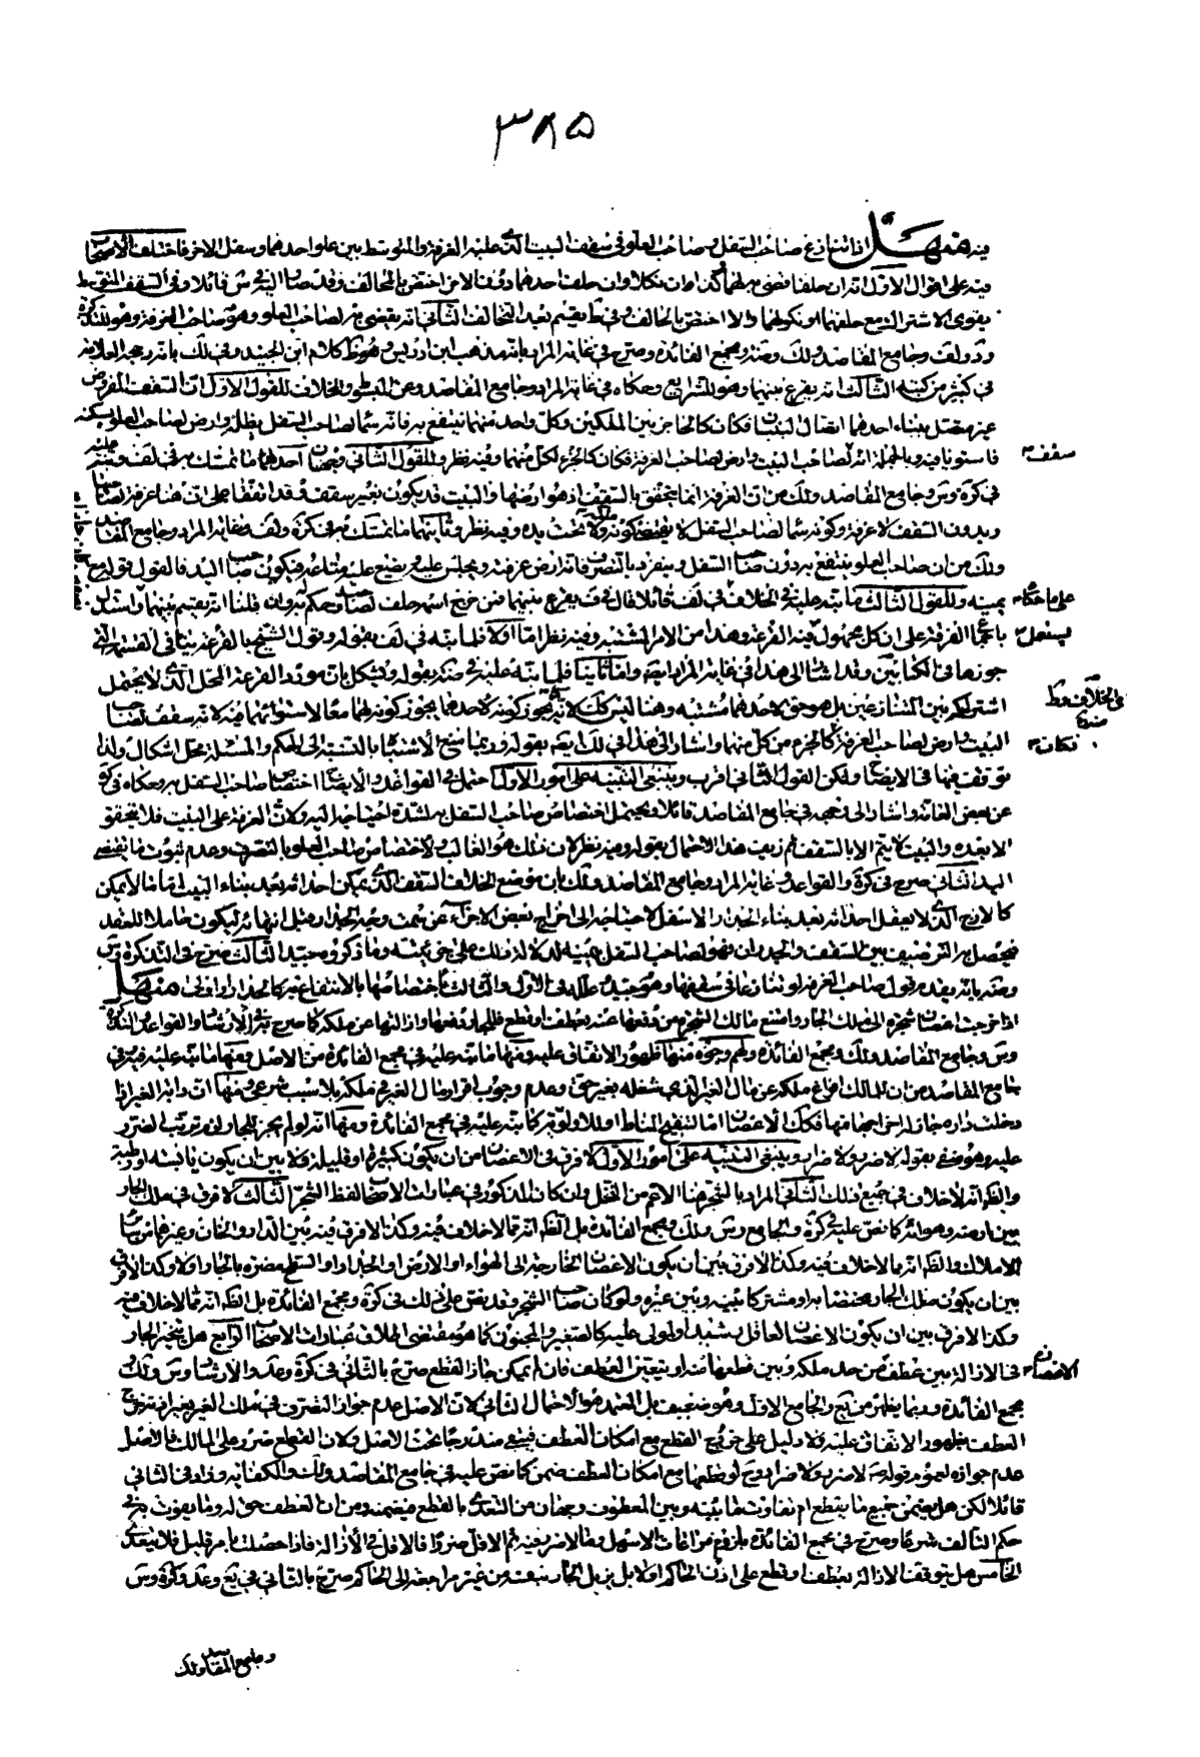 ٣٨٥
فيه منهل اذا تنازع صاحب السفل وصاحب العلو فى سقف البيت الذى عليه الغرفة والمتوسط بين علو احدهما وسفل الاخر فاختلف الاصحاب
فيه على اقوال الاول انه ان حلفا قضى به لهما وكذا ان نكلا وان حلف احدهما دون الاخر اختص بالحالف
يقوى الاشتراك مع حلفهما او نكولهما والا اختص بالحالف وفى يقسم بعد التحالف الثانى انه يقضى به لصاحب العلو وهو صاحب الغرفة وهو للتذكرة
ولف وجامع المقاصد ولك وضه ومجمع الفائدة وصرح فى غاية المراد بانه مذهب ابن ادريس وهو ظ كلام ابن الجنيد وفى لك بانه رجحه العلامة
فى كثير من كتبه الثالث انه يقرع بينهما وهو للشرايع وحكاه فى غاية المراد وجامع المقاصد وعن المبسوط والخلاف للقول الاول ان السقف المفروض
غير متصل ببناء احدهما اتصال البنيان فكان كالحاجز بين الملكين وكل واحد منهما ينتفع به فانه سماء لصاحب السفل يظله وارض لصاحب العلو يسكنه
فاستويا فيه وبالجملة انه لصاحب البيت وارض لصاحب الغرفة فكان كالجزء لكل منهما وفيه نظر وللقول الثانى وجهان احدهما ما تمسك به فى لف ونبه عليه
سقف
فى كرة وس وجامع المقاصد ولك من ان الغرفة انما يتحقق بالسقف اذ هو ارضها والبيت قد يكون بغير سقف وقد اتفقا على ان هنا غرفة لصاحبها
وبدون السقف لا غرفة وكونه سماء لصاحب السفل لا يقتضى كونه تحت يده وفيه نظر وثانيهما ما تمسك به فى كرة ولف وغاية المراد وجامع المقاصد
ولك من ان صاحب العلو ينتفع به دون صاحب السفل وينفرد بالتصرف فانه ارض غرفته ويجلس عليه ويضع عليه متاعه فيكون صاحب اليد فالقول قوله مع
يمينه وللقول الثالث ما نبه عليه فى الخلاف فى لف قائلا قال فى ف يقرع بينهما فمن خرج اسمه حلف لصاحبه وحكم له به وان قلنا انه يقسم بينهما واستدل
على ما حكاه
باجماع الفرقة على ان كل مجهول فيه القرعة وهذا من الامر المشتبه وفيه نظر اما اولا فلما نبه فى لف بقوله وقول الشيخ بالقرعة ينافى القسمة التى
جوزها فى الكتابين وقد اشار الى هذا فى غاية المراد ايضا واما ثانيا فلما نبه عليه فى ضه بقوله ويشكل بان مورد القرعة المحل الذى لا يحتمل
اشتراكه بين المتنازعين بل هو حق لاحدهما مشتبه وهنا ليس كك لانه كما يجوز كونه لاحدهما يجوز كونه لهما معا لاستوائهما فيه لانه سقف لصاحب
البيت وارض لصاحب الغرفة فكان كالجزء من كل منهما واشار الى هذا فى لك ايضا بقوله وربما منع الاشتباه بالنسبة الى الحكم والمسئلة محل اشكال ولذا
فكانه
توقف فيها فى الايضاح ولكن القول الثانى اقرب وينبغى التنبيه على امور الاول احتمل فى القواعد والايضاح اختصاص صاحب السفل به وحكاه فى كرة
عن بعض العامة واشار الى وجهه فى جامع المقاصد قائلا ويحتمل اختصاص صاحب السفل به لشدة احتياجه اليه ولان الغرفة على البيت فلا يتحقق
الا بعده والبيت لا يتم الا بالسقف ثم زيف هذا الاحتمال بقوله وفيه نظر لان ذلك هو الغالب ولاختصاص صاحب العلو بالتصرف وعدم ثبوت ما يقتضى
اليد الثانى صرح فى كرة والقواعد وغاية المراد وجامع المقاصد ولك بان موضع الخلاف السقف الذى يمكن احداثه بعد بناء البيت اما ما لا يمكن
كالازج الذى لا يعقل احداثه بعد بناء الجدار الاسفل لاحتياجه الى اخراج بعض الاجزاء عن سمت وجه الجدار قبل انتهائه ليكون حاملا للعقد
فيحصل به الترصيف بين السقف والجدران فهو لصاحب السفل بيمينه لدلالة ذلك على جزئيته وما ذكروه جيد الثالث صرح فى التذكرة وس
وضه بانه يقدم قول صاحب الغرفة لو تنازعا فى سقفها وهو جيد على الاول والثالث لاختصاصها بالانتفاع به كالجدار اولى منهل
اذا خرجت اغصان شجرة الى ملك الجار وامتنع مالك الشجرة من دفعها عنه بعطف او قطع فللجار دفعها وازالتها عن ملكه كما صرح به فى الارشاد والقواعد والتذكرة
وس وجامع المقاصد ولك ومجمع الفائدة ولهم وجوه منها ظهور الاتفاق عليه ومنها ما نبه عليه فى مجمع الفائدة من الاصل ومنها ما نبه عليه فيه وفى
جامع المقاصد من ان للمالك افراغ ملكه عن مال الغير الذى شغله بغير حق وعدم وجوب اقرار مال الغير فى ملكه بلا سبب شرعى ومنها ان دابة الغير اذا
دخلت داره جاز له اخراجها منها فكك الاغصان اما لتنقيح المناط او للاولوية كما نبه عليه فى مجمع الفائدة ومنها انه لو لم يجز للجار ذلك لترتب الضرر
عليه وهو منفى بقوله لا ضرر ولا ضرار وينبغى التنبيه على امور الاول لا فرق فى الاغصان من ان يكون كثيرة او قليلة ولا بين ان يكون يابسة او رطبة
والظ انه لا خلاف فى جميع ذلك الثانى المراد بالشجر هنا الاعم من النخل وان كان المذكور فى عبارات الاصحاب لفظ الشجر الثالث لا فرق فى ملك الجار
بين ارضه وهوائه كما نص عليه فى كرة والجامع وس ولك ومجمع الفائدة بل الظ انه مما لا خلاف فيه وكذا لا فرق فيه بين الدار والخان وغيرهما من ساير
الاملاك والظ انه مما لا خلاف فيه وكذا لا فرق بين ان يكون الاغصان الخارجة الى الهواء او الارض او الجدار او السطح مضرة بالجار او لا وكذا لا فرق
بين ان يكون ملك الجار مختصا به او مشتركا بينه وبين غيره ولو كان صاحب الشجر وقد نص على ذلك فى كرة ومجمع الفائدة بل الظ انه مما لا خلاف فيه
وكذا لا فرق بين ان يكون الاغصان لعاقل رشيد او لمولى عليه كالصغير والمجنون كما هو مقتضى اطلاق عبارات الاصحاب الرابع هل يتخير الجار
فى الازالة بين عطف من حد ملكه وبين قطعها منه او يتعين العطف فان لم يمكن جاز القطع صرح بالثانى فى كرة وعد والارشاد وس ولك
الاغصان
مجمع الفائدة وربما يظهر من يع والجامع الاول وهو ضعيف بل المعتمد هو الاحتمال الثانى لان الاصل عدم جواز التصرف فى ملك الغير بغير اذنه خرج
العطف بظهور الاتفاق عليه ولا دليل على خروج القطع مع امكان العطف فيبقى مندرجا تحت الاصل ولان القطع ضرر على المالك فالاصل
عدم جوازه لعموم قوله ص لا ضرر ولا ضرار ولو قطعها مع امكان العطف ضمن كما نص عليه فى جامع المقاصد ولك والكفاية وزاد فى الثانى
قائلا لكن هل يضمن جميع ما يقطع ام تفاوت ما بينه وبين المعطوف وجهان من التعدى بالقطع فيضمنه ومن ان العطف حق له وما يفوت به فى
حكم التالف شرعا وصرح فى مجمع الفائدة بلزوم مراعات الاسهل وما لا ضرر فيه ثم الاقل ضررا فالاقل فى الازالة فاذا حصلت بامر قليل فلا يتعدى
الخامس هل يتوقف الازالة بعطف او قطع على اذن الحاكم او لا بل يزيل الجار بنفسه من غير مراجعة الى الحاكم صرح بالثانى فى يع وعد وكرة وس
وجامع المقاصد ولك